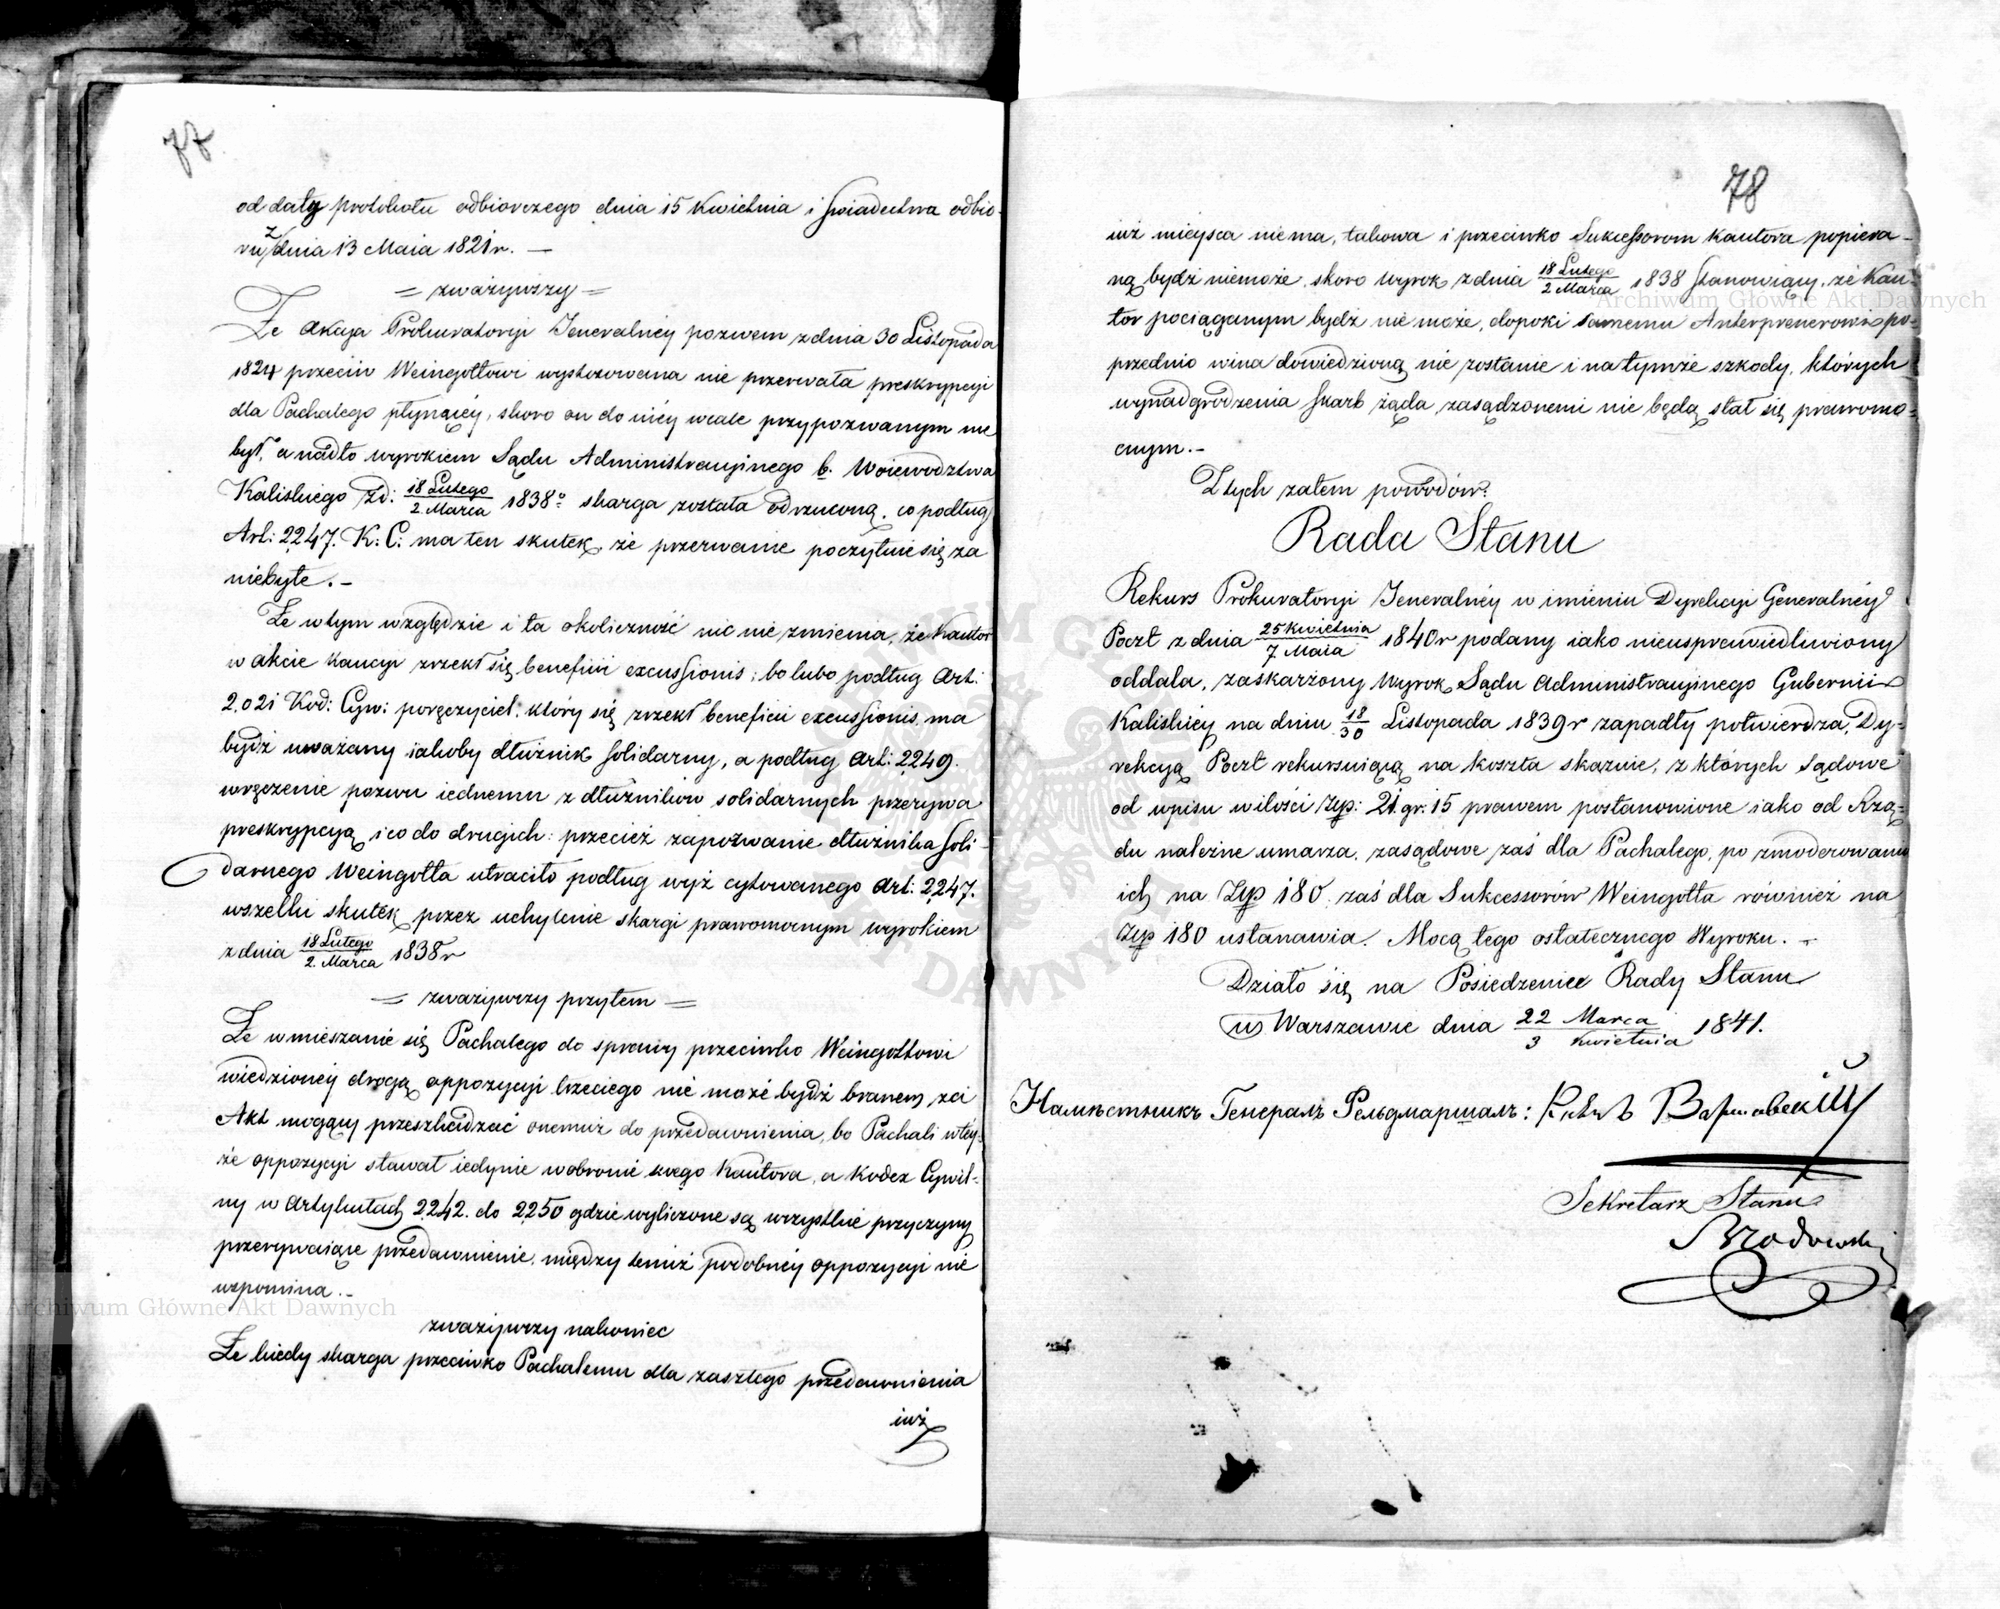 77
od daty protokołu odbiorczego dnia 15 Kwietnia i świadectwa odbio-
ru z dnia 13 Maia 1821 r. —
= zważywszy =
Że akcya Prokuratoryi Jeneralnéy pozwem z dnia 30 Listopada
1824 przeciw Weingottowi wystosowana nie przerwała preskrypcyi
dla Pachalego płynącéy, skoro on do niéy wcale przypozwanym nie
był, a nadto wyrokiem Sądu Administracyinego b. Woiewodztwa
Kaliskiego zd: 18 Lutego / 2 Marca 1838º skarga została odrzuconą, co podług
Art: 2247. K: C: ma ten skutek, że przerwanie poczytuie się za
niebyłe. –
Że w tym względzie i ta okoliczność nic nie zmienia, że Kautor
w akcie kaucyi zrzekł się beneficii excussionis; bo lubo podług Art:
2.021 Kod: Cyw: poręczyciel, który się zrzekł beneficii excussionis, ma
bydź uważany iakoby dłużnik solidarny, a podług Art: 2249.
wręczenie pozwu iednemu z dłużników solidarnych przerywa
preskrypcyą i co do drugich: przecież zapozwanie dłużnika soli-
darnego Weingotta utraciło podług wyż cytowanego Art: 2247.
wszelki skutek przez uchylenie skargi prawomocnym wyrokiem
z dnia 18 Lutego / 2. Marca 1838 r
= zważywszy przytem =
Że wmieszanie się Pachalego do sprawy przeciwko Weingottowi
wiedzionéy drogą oppozycyi trzeciego nie może bydź branem za
Akt mogący przeszkadzać onemuż do przedawnienia, bo Pachali w téy-
że oppozycyi stawał iedynie w obronie swego Kautora, a Kodex Cywil-
ny w Artykułach 2242. do 2250 gdzie wyliczone są wszystkie przyczyny
przerywaiące przedawnienie, między temiż podobnéy oppozycyi nie
wspomina. –
zważywszy nakoniec
Że kiedy skarga przeciwko Pachalemu dla zaszłego przedawnienia
iuż
78
iuż mieysca niema, takowa i przeciwko Sukcessorom Kautora popiera-
ną bydź niemoże, skoro wyrok z dnia 18 Lutego / 2 Marca 1838 stanowiący, że Kau-
tor pociąganym bydź nie może, dopoki samemu Anterprenerowi po-
przednio wina dowiedzioną nie zostanie i na tymże szkody, których
wynadgrodzenia skarb żąda, zasądzonemi nie będą, stał się prawomo-
cnym. –
Z tych zatem powodów:
Rada Stanu
Rekurs Prokuratoryi Jeneralnéy w imieniu Dyrekcyi Generalnéy
Poczt z dnia 25 Kwietnia / 7 Maia 1840 r podany iako nieusprawiedliwiony
oddala, zaskarżony Wyrok Sądu Administracyinego Gubernii
Kaliskiéy na dniu 18/30 Listopada 1839 r zapadły potwierdza, Dy-
rekcyą Poczt rekursuiącą na koszta skazuie, z których sądowe
od wpisu w ilości Złp: 21. gr: 15 prawem postanowione iako od Rzą-
du należne umarza, zasądowe zaś dla Pachalego, po zmoderowaniu
ich na Złp 180, zaś dla Sukcessorów Weingotta również na
Złp 180 ustanawia. Mocą tego ostatecznego Wyroku. –
Działo się na Posiedzeniu Rady Stanu
w Warszawie dnia 22 Marca / 3 Kwietnia 1841.
Намѣстникъ Генералъ Фельдмаршалъ: Князь Варшавскій
Sekretarz Stanu
Brodowski
Archiwum Główne Akt Dawnych
Archiwum Główne Akt Dawnych